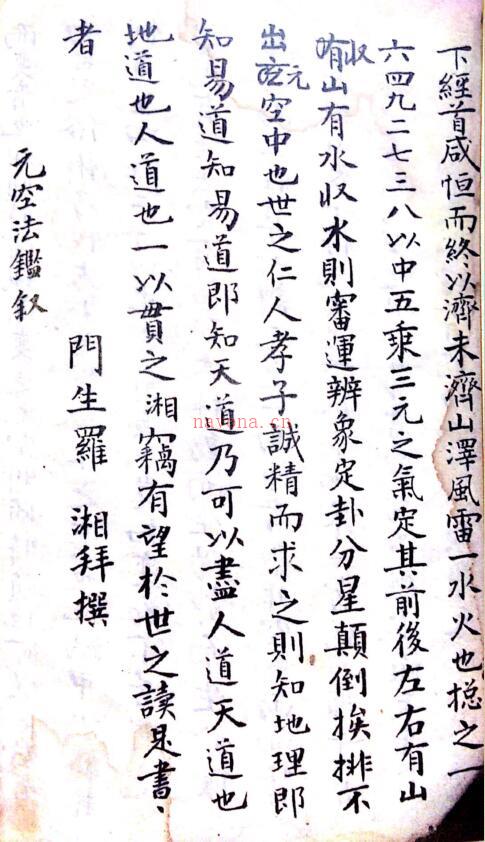 下經首咸恒而終以濟未濟山澤風雷一水火也總之一
六四九二七三八以中五乘三元之氣定其前後左右有山
收山有水収水則審運辨象定卦分星顛倒挨排不
出元空中也世之仁人孝子誠精而求之則知地理即
知易道知易道即知天道乃可以盡人道天道也
地道也人道也一以貫之湘竊有望於世之讀是書、
者
門生羅湘拜撰
元空法鑑叙
nayona.cn